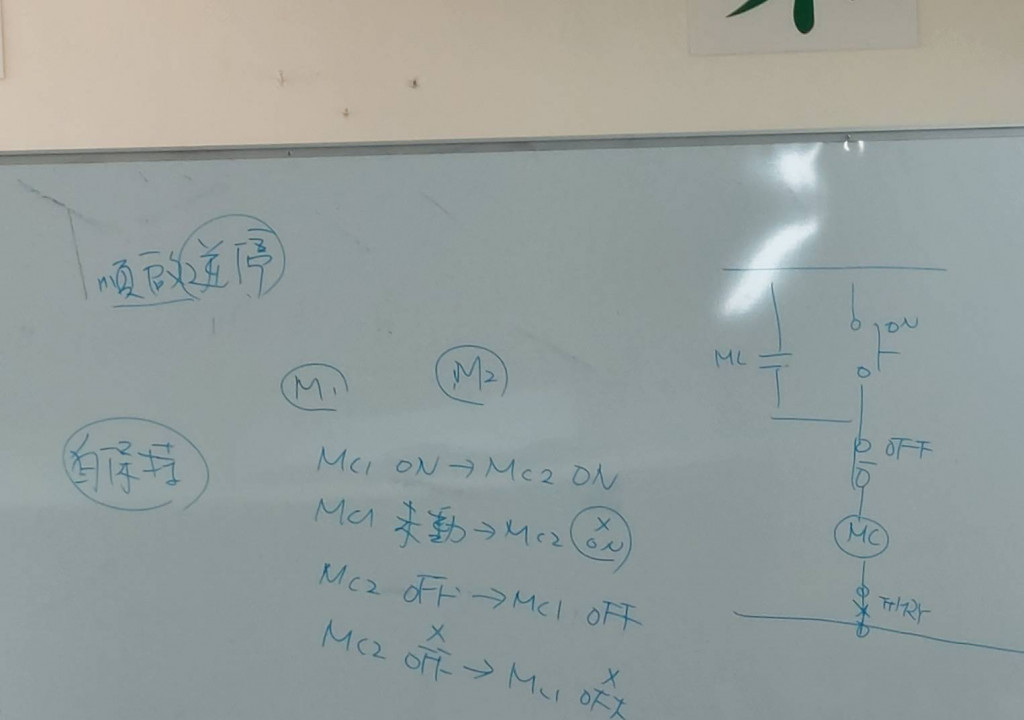 順啟逆停
M1 M2
自保持
MC1 ON→MC2 ON
MC1 未動→MC2 X ON
MC2 OFF→MC1 OFF
MC2 X OFF→MC1 X OFF
ON
MC
OFF
MC